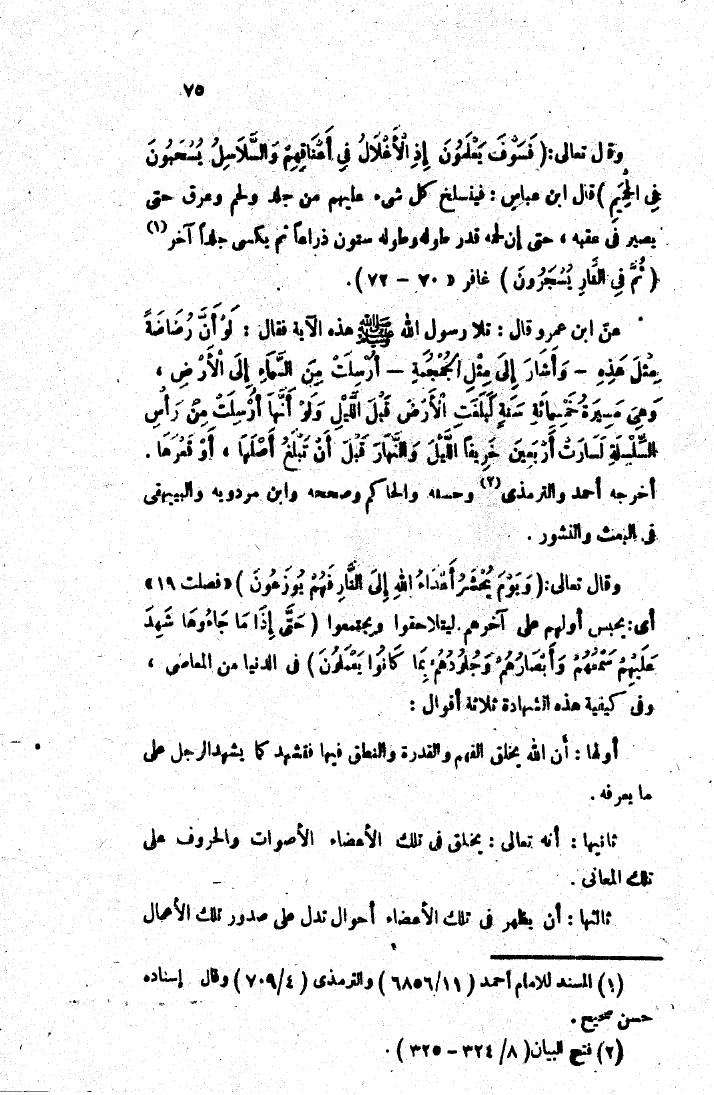 ٧٥
وقال تعالى:( فَسَوْفَ يَعْلَمُونَ إِذِ الْأَغْلَالُ فِي أَعْنَاقِهِمْ وَالسَّلَاسِلُ يُسْحَبُونَ
فِي الْحَمِيمِ )قال ابن عباس : فينسلخ كل شىء عليهم من جلد ولحم وعرق حتى
يصير فى عقبه ، حتى إن لحمه قدر طوله وطوله ستون ذراعاً ثم يكسى جلداً آخر (١)
( ثُمَّ فِي النَّارِ يُسْجَرُونَ ) غافر « ٧٠ – ٧٢ ) .
عن ابن عمرو قال : تلا رسول الله ﷺ هذه الآية فقال : لَوْ أَنَّ رُضَاضَةً
مِثْلَ هَذِهِ – وَأَشَارَ إِلَى مِثْلِ الْجُمْجُمَةِ – أُرْسِلَتْ مِنَ السَّمَاءِ إِلَى الْأَرْضِ ،
وَهِيَ مَسِيرَةُ خَمْسِمِائَةِ سَنَةٍ لَبَلَغَتِ الْأَرْضَ قَبْلَ اللَّيْلِ وَلَوْ أَنَّهَا أُرْسِلَتْ مِنْ رَأْسِ
السِّلْسِلَةِ لَسَارَتْ أَرْبَعِينَ خَرِيفاً اللَّيْلَ وَالنَّهَارَ قَبْلَ أَنْ تَبْلُغَ أَصْلَهَا ، أَوْ قَعْرَهَا .
أخرجه أحمد والترمذى (٢) وحسنه والحاكم وصححه وابن مردويه والبيهقى
فى البعث والنشور .
وقال تعالى:( وَيَوْمَ يُحْشَرُ أَعْدَاءُ اللهِ إِلَى النَّارِ فَهُمْ يُوزَعُونَ ) «فصلت ١٩»
أى: يحبس أولهم على آخرهم ليتلاحقوا ويجتمعوا ( حَتَّى إِذَا مَا جَاءُوهَا شَهِدَ
عَلَيْهِمْ سَمْعُهُمْ وَأَبْصَارُهُمْ وَجُلُودُهُمْ بِمَا كَانُوا يَعْمَلُونَ ) فى الدنيا من المعاصى ،
وفى كيفية هذه الشهادة ثلاثة أقوال :
أولها : أن الله يخلق الفهم والقدرة والنطق فيها فتشهد كما يشهد الرجل على
ما يعرفه .
ثانيها : أنه تعالى : يخلق فى تلك الأعضاء الأصوات والحروف على
تلك المعانى .
ثالثها : أن يظهر فى تلك الأعضاء أحوال تدل على صدور تلك الأعمال
(١) المسند للامام أحمد ( ٦٨٥٦/١١ ) والترمذى ( ٧٠٩/٤ ) وقال إسناده
حسن صحيح .
(٢) فتح البيان( ٨/ ٣٢٤ – ٣٢٥ ) .